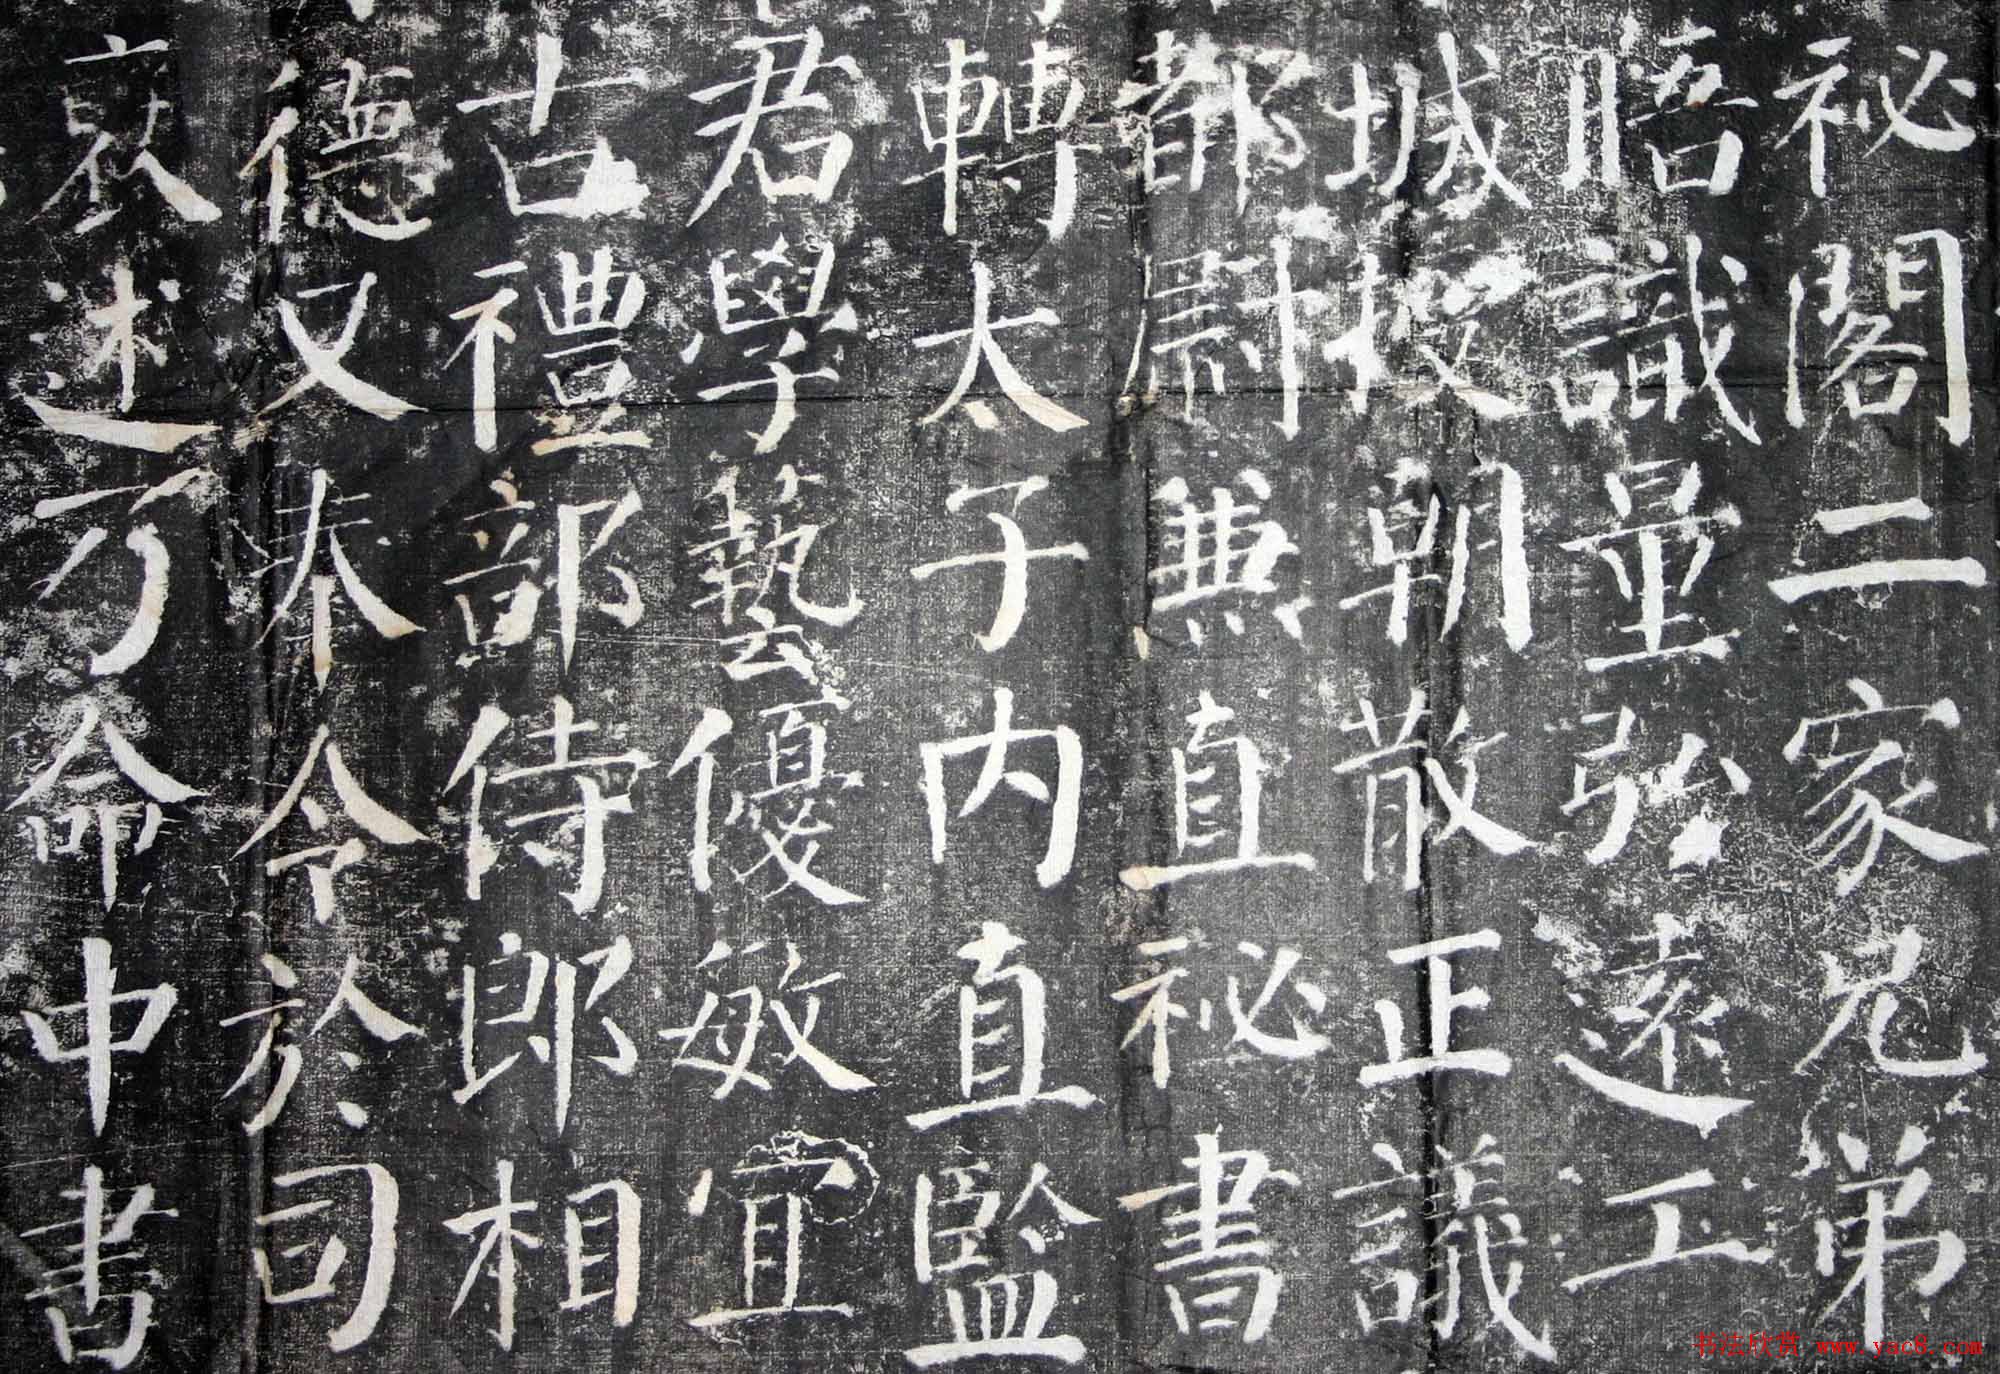 祕閣二家兄弟
晤識量弘遠工
城授朝散正議
都尉兼直祕書
轉太子内直監
君學藝優敏宜
吉禮部侍郎相
德又奉令於司
述乃命中書
书法欣赏 www.yac8.com